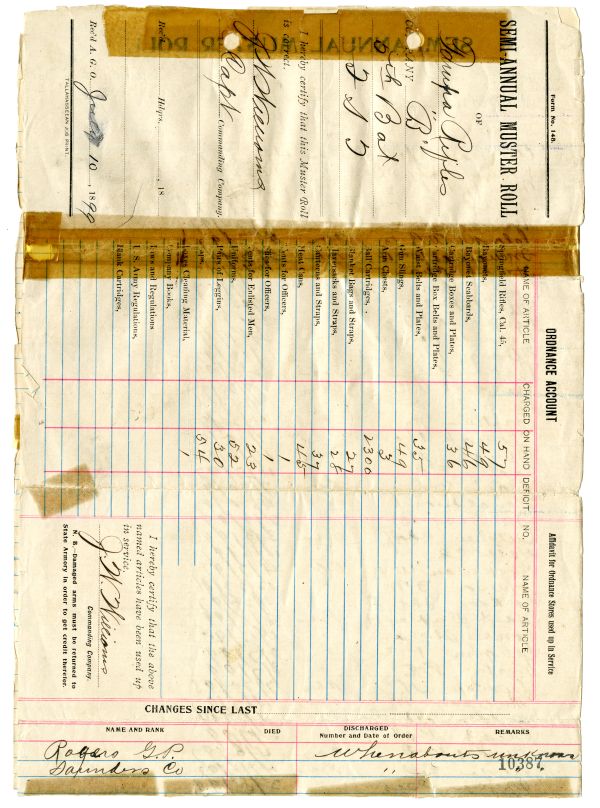 Form No. 148.
SEMI-ANNUAL MUSTER ROLL
OF
Tampa Rifles
COMPANY B.
5th Bat
F S T
I hereby certify that this Muster Roll
is correct.
J W Williams
Capt. Commanding Company.
Hdqrs., 18
Rec'd A. G. O. July 10, 1899
TALLAHASSEEAN JOB PRINT.
ORDNANCE ACCOUNT
NAME OF ARTICLE CHARGED ON HAND DEFICIT
Springfield Rifles, Cal. 45, 57
Bayonets, 49
Bayonet Scabbards, 46
Cartridge Boxes and Plates, 36
Cartridge Box Belts and Plates,
Waist Belts and Plates, 35
Gun Slings, 49
Arm Chests, 3
Ball Cartridges, 2300
Blanket Bags and Straps, 27
Haversacks and Straps, 28
Canteens and Straps, 37
Meat Cans, 45
Tents for Officers, 1
for Officers, 1
Tents for Enlisted Men, 23
Uniforms, 52
Pairs of Leggins, 30
Caps, 54
Cleaning Material, 1
Company Books,
Laws and Regulations
U. S. Army Regulations,
Blank Cartridges,
Affidavit for Ordnance Stores used up in Service
NO. NAME OF ARTICLE
I hereby certify that the above
named articles have been used up
in service.
J. W. Williams
Commanding Company.
N. B.—Damaged arms must be returned to
State Armory in order to get credit therefor.
CHANGES SINCE LAST
NAME AND RANK DIED DISCHARGED Number and Date of Order REMARKS
Rogers G. P. Whereabouts unknown
Saunders Co " "
10387